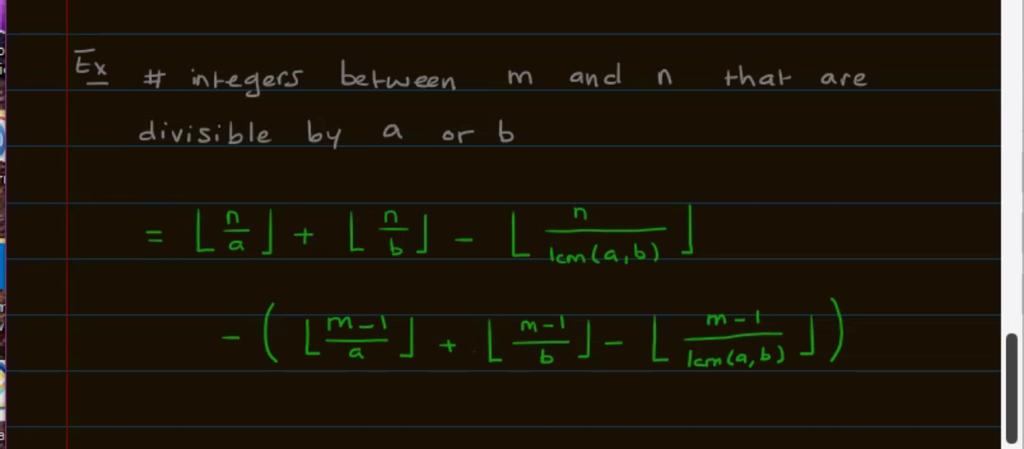 Ex # integers between m and n that are
divisible by a or b
= ⌊n/a⌋ + ⌊n/b⌋ - ⌊n/lcm(a,b)⌋
- (⌊m-1/a⌋ + ⌊m-1/b⌋ - ⌊m-1/lcm(a,b)⌋)